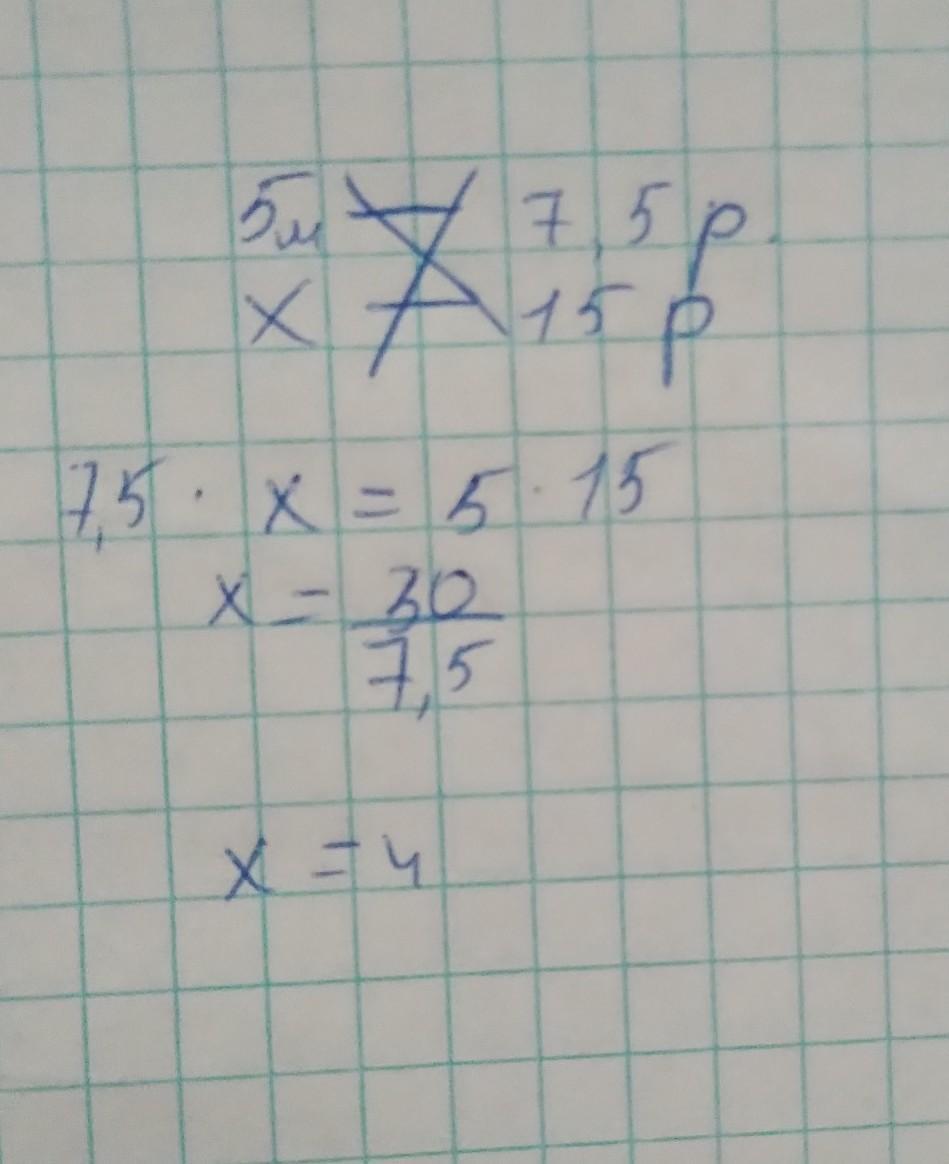 5м 7,5 р.
х 15 р
7,5 · х = 5 · 15
х = 30/7,5
х = 4